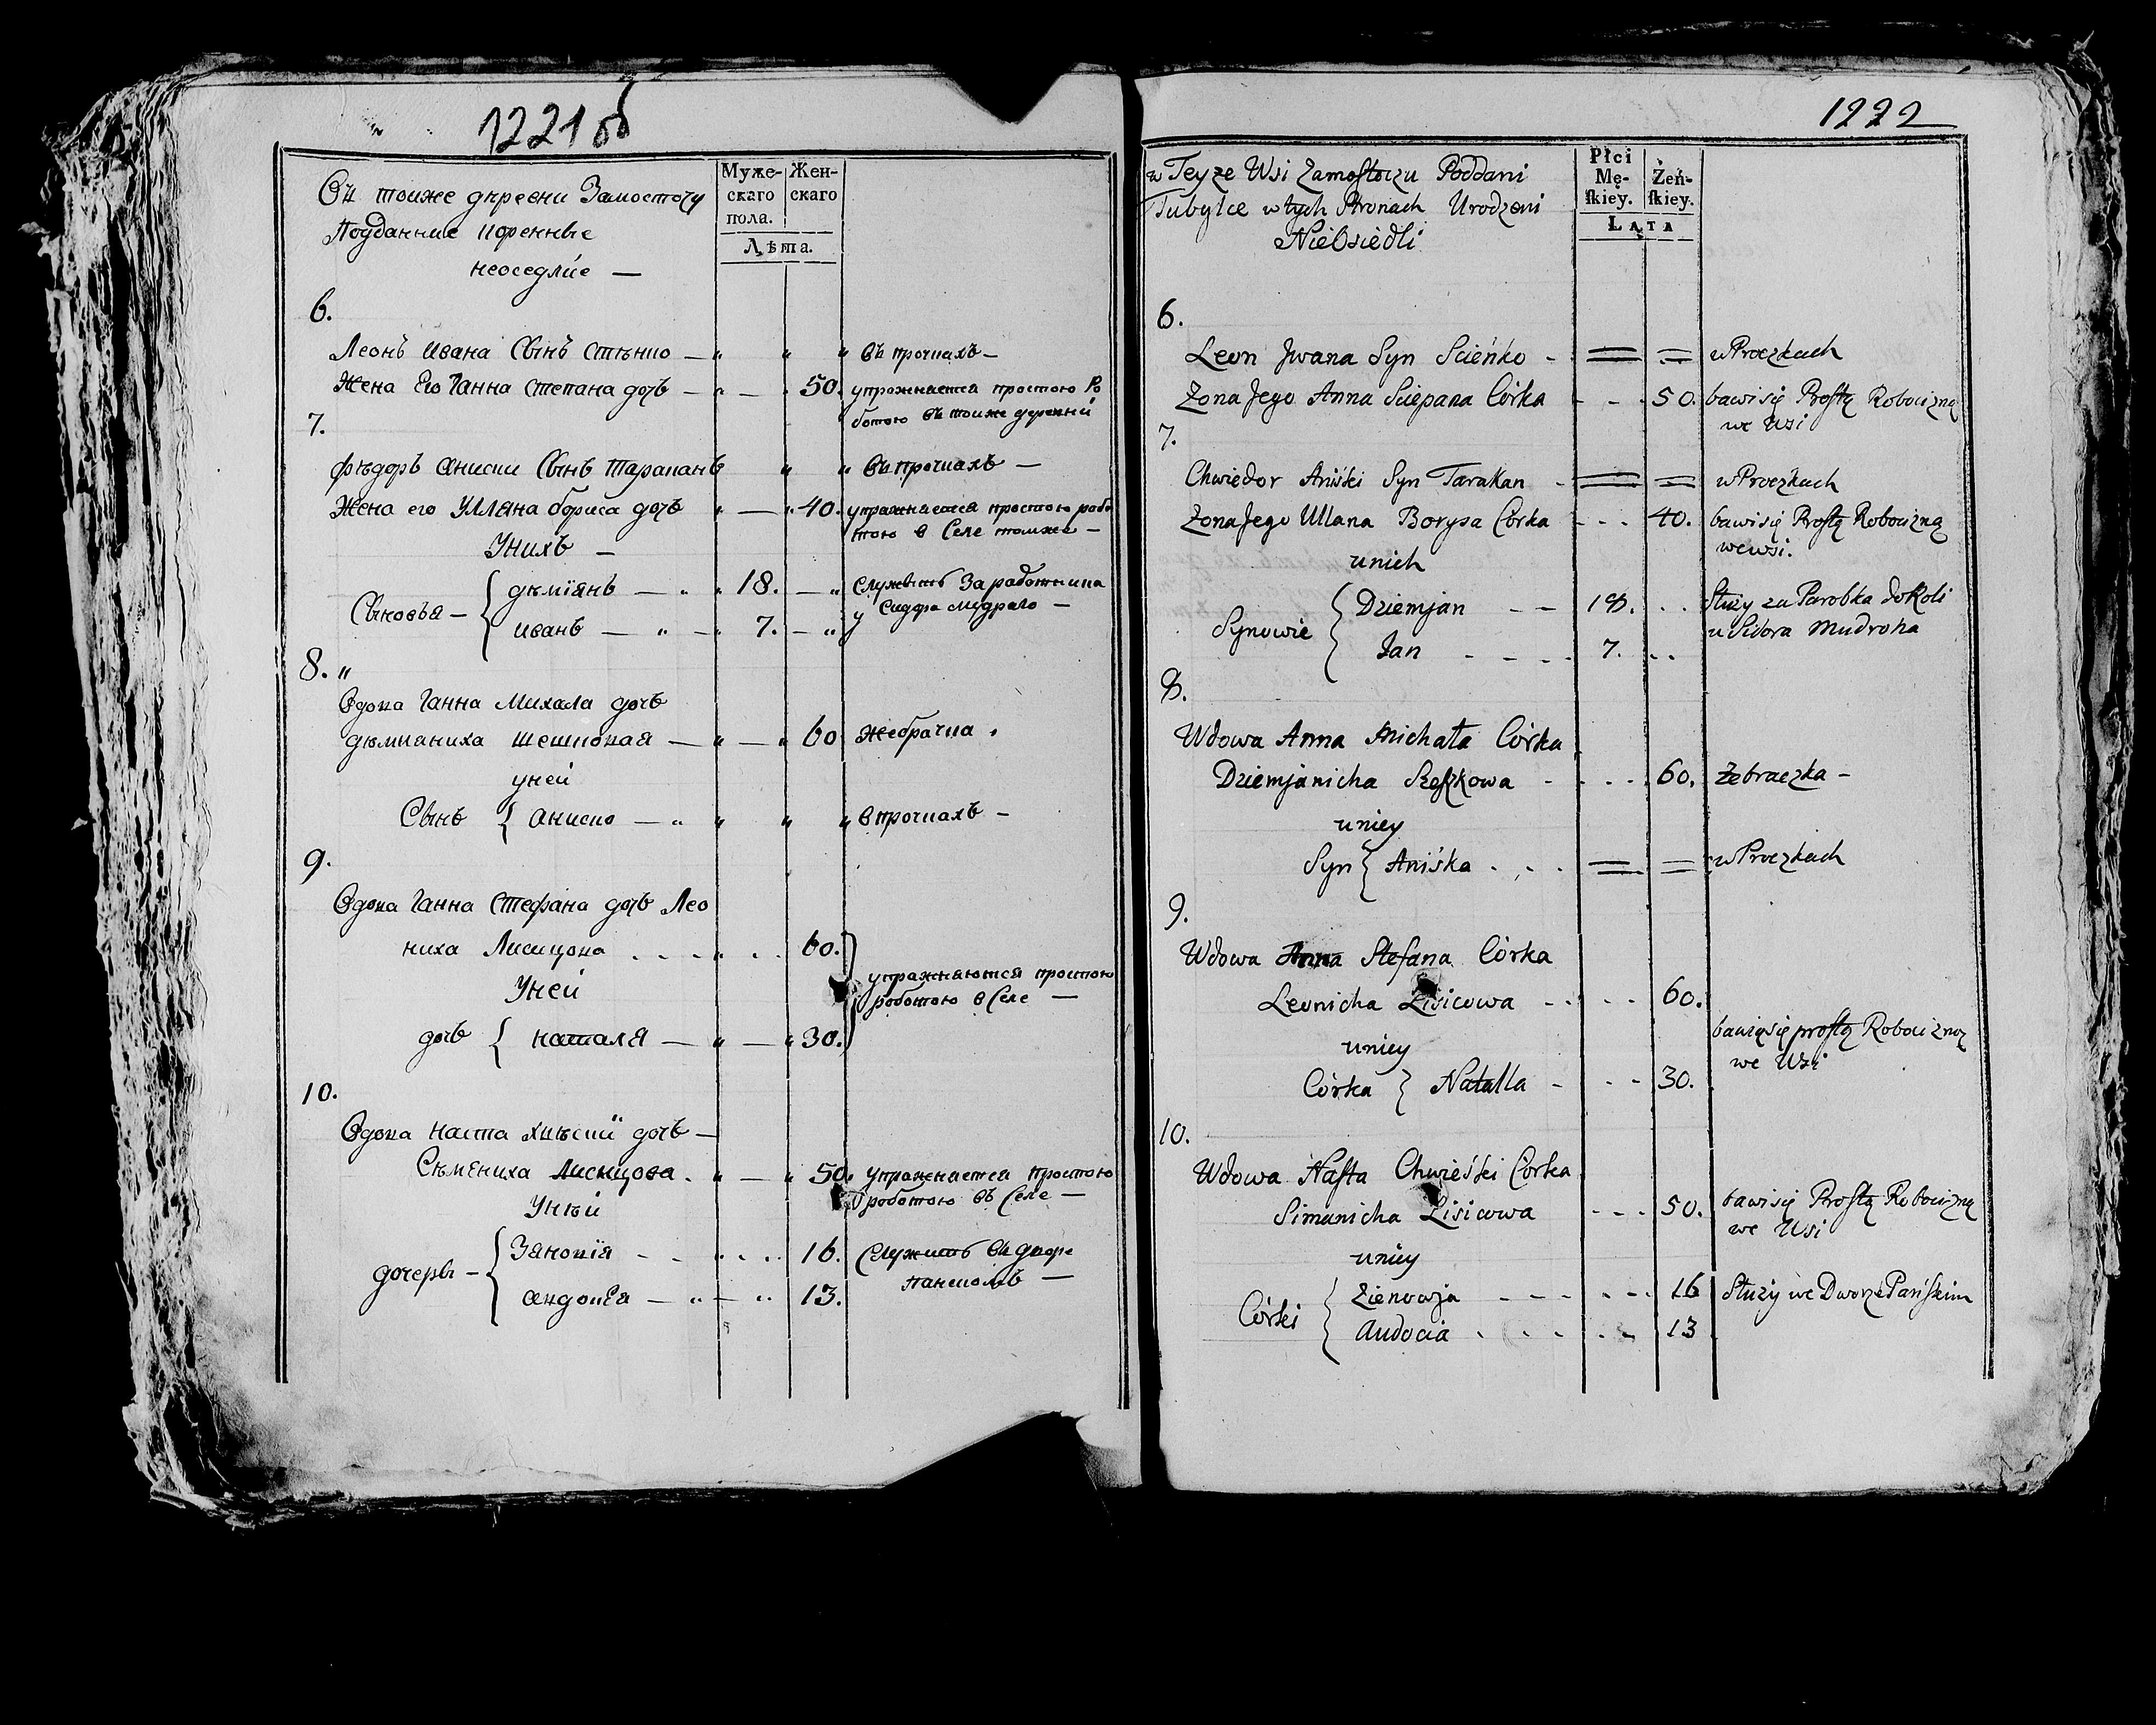 1221 об
Въ тоиже дѣревни Замосточу
Подданние коренные
неоседлие —
Муже-
скаго
пола.
Жен-
скаго
Лѣта.
6.
Леонъ Ивана Сынъ Стѣнко — " " " въ прочкахъ —
Жена Его Ганна Степана дочь — " — 50. упрожняется простою Ро
ботою въ тоиже деревни
7.
Фѣдоръ Аниски Сынъ Тараканъ " " въ прочкахъ —
Жена его Улляна бориса дочь " — " 40. упражняется простою рабо
тою в Селе томже —
Унихъ —
Сыновья — { дѣмїянъ — " " 18. — " Служитъ За работника
иванъ — " — 7. — " у Сидора мудраго —
8. "
Вдова Ганна Михала дочь
дѣмианиха шешковая — " — " 60 жебрачка
уней
Сынъ { Аниско — " " " " впрочкахъ —
9.
Вдова Ганна Стефана дочь Лео
ниха Лисицова . . . " . . 60.
упражняются простою
Уней
роботою в Селе —
дочь { наталя — " — " 30.
10.
Вдова наста хвѣски дочь —
Сѣмениха Лисицова . " — " 50. упражняется простою
роботою въ Селе —
Унѣй
дочеры — { Зѣновїя - - " . . . 16. Служитъ въ дворе
панскомъ —
авдотя — " — " 13.
1222
w Teyze Wsi Zamostoczu Poddani
Tubylce w tych Stronach Urodzeni
Nieosiedli
Płci
Mę-
skiey.
Żeń-
skiey.
LATA
6.
Leon Jwana Syn Scieńko - = = w Proczkach
Zona Jego Anna Sciepana Córka - - . 50. bawi się Prostą Robocizną
we Wsi
7.
Chwiedor Aniśki Syn Tarakan - = = w Proczkach
Zona Jego Ullana Borysa Córka - - - 40. bawi się Prostą Robocizną
we wsi.
u nich
Synowie { Dziemjan - - 18. . . Służy za Parobka dokoli
u Sidora Mudroha
Jan - - - . 7. . .
8.
Wdowa Anna Michała Córka
Dziemjanicha Szeszkowa - . . . 60. Żebraczka -
u niey
Syn { Aniśka . . . = = w Proczkach
9.
Wdowa Anna Stefana Córka
Leonicha Lisicowa - . . . 60.
bawią się prostą Robocizną
u niey
we Wsi
Córka } Natalla - - - 30.
10.
Wdowa Nasta Chwieśki Córka
Simanicha Lisicowa - - - 50. bawi się Prostą Robocizną
we Wsi
u niey
Córki { Zienowja - - - . . . 16 Służy we Dworze Pańskim
Audocia . . . . . . 13